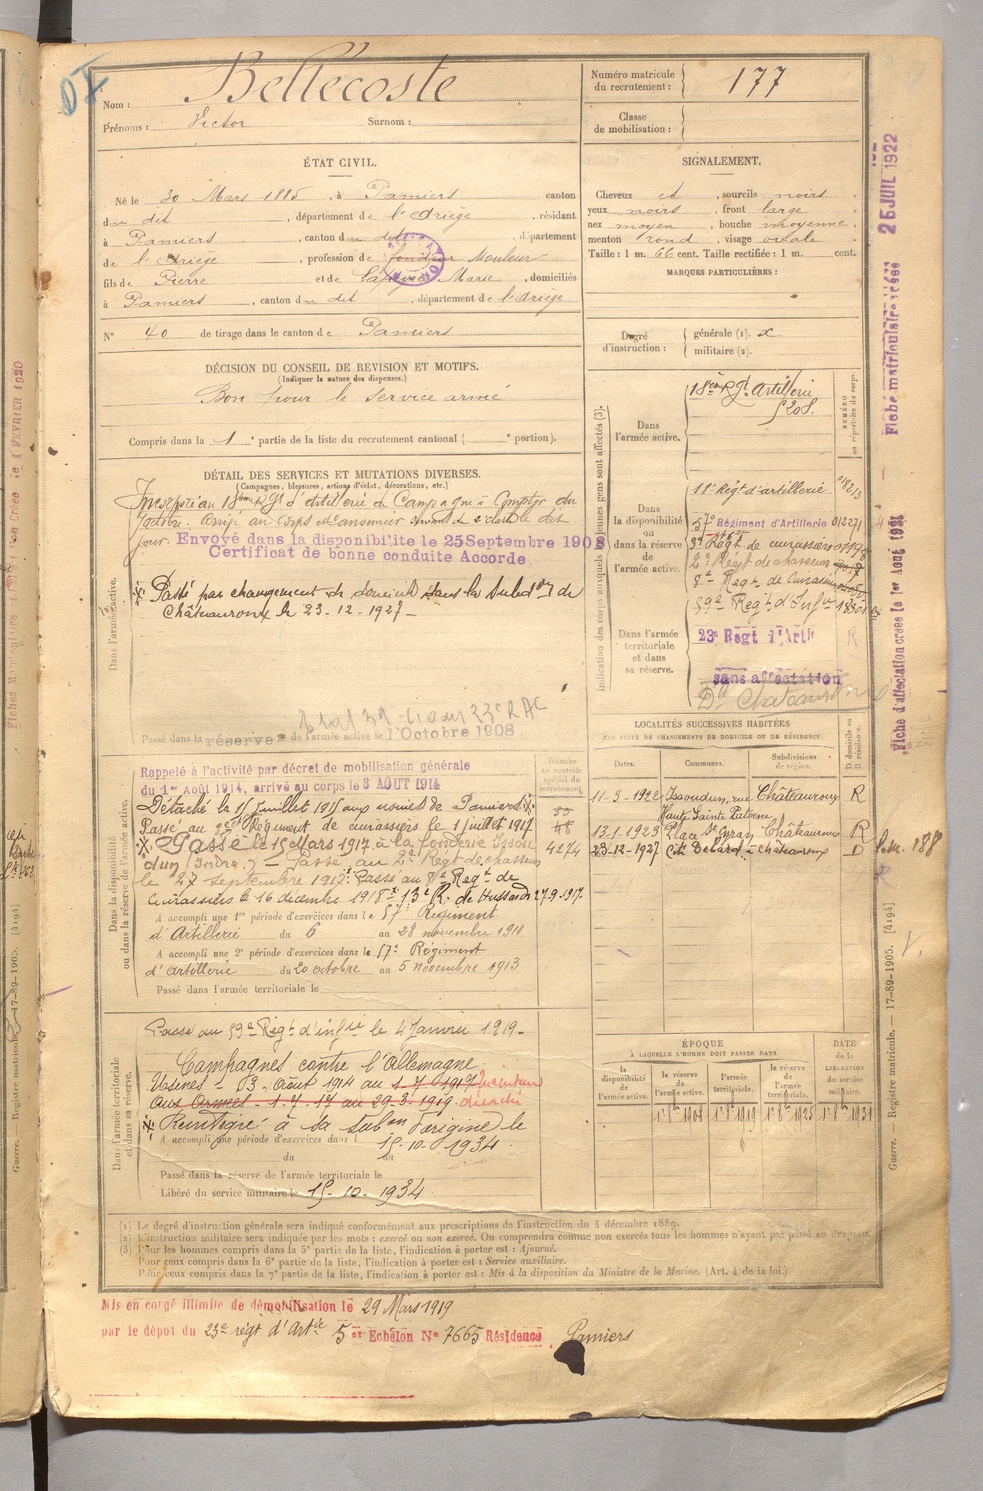 Nom : Bellecoste
Prénoms : Victor Surnom :
Numéro matricule du recrutement : 177
Classe de mobilisation :
ÉTAT CIVIL.
Né le 30 Mars 1885, à Pamiers canton
du dit, département de l'Ariège, résidant
à Pamiers, canton du dit, département
de l'Ariège, profession de fondeur Mouleur
fils de Pierre et de Marie, domiciliés
à Pamiers, canton du dit, département de l'Ariège
N° 40 de tirage dans le canton de Pamiers
SIGNALEMENT.
Cheveux et, sourcils noirs
yeux noirs, front large
nez moyen, bouche moyenne
menton rond, visage ovale
Taille : 1 m. 66 cent. Taille rectifiée : 1 m. cent.
MARQUES PARTICULIÈRES :
Degré d'instruction : générale (1). x
militaire (2).
DÉCISION DU CONSEIL DE REVISION ET MOTIFS.
(Indiquer la nature des dispenses.)
Bon pour le service armé
Compris dans la 1e partie de la liste du recrutement cantonal ( e portion).
DÉTAIL DES SERVICES ET MUTATIONS DIVERSES.
(Campagnes, blessures, actions d'éclat, décorations, etc.)
Incorporé au 18ème Rgt d'artillerie de Campagne à Compter du
octobre. Arrivé au Corps et canonnier servant de 2e classe le dit
jour. Envoyé dans la disponibilite le 25 Septembre 1908
Certificat de bonne conduite Accorde
Passé par changement de domicile dans la Subdon de
Châteauroux le 23-12-1927
Dans l'armée active.
Passé dans la réserve de l'armée active le 1 Octobre 1908
Rappelé à l'activité par décret de mobilisation générale
du 1er Août 1914, arrivé au corps le 3 AOUT 1914
Détaché le 15 juillet 1915 aux usines de Pamiers.
Passé au 3e Régiment de cuirassiers le 1 juillet 1917
Passé le 15 Mars 1917 à la fonderie Issou
dun (Indre) – Passé au 2e Regt de chasseurs
le 27 septembre 1917. Passé au 8e Regt de
Cuirassiers le 16 décembre 1918 x 13e R. de Hussards 27-9-1917.
A accompli une 1re période d'exercices dans le 57e Régiment
d'Artillerie du 6 au 28 novembre 1911
A accompli une 2e période d'exercices dans le 57e Régiment
d'artillerie du 20 octobre au 5 novembre 1913
Passé dans l'armée territoriale le
Dans la disponibilité ou dans la réserve de l'armée active.
Numéro au contrôle spécial du recrutement.
4274
Passé au 59e Régt d'infie le 4 Janvier 1919-
Campagnes contre l'Allemagne
Usines - 03 Août 1914 au 1-7-1917
aux Armées - 1-7-17 au 29-3-1919. détaché
Réintégré à sa subon d'origine le
15-10-1934
A accompli une période d'exercices dans l
du au
Passé dans la réserve de l'armée territoriale le
Libéré du service militaire le 15-10-1934
Dans l'armée territoriale et dans sa réserve.
Indication des corps auxquels les jeunes gens sont affectés (3).
NUMÉRO au répertoire du corps.
Dans l'armée active.
18ème Rgt Artillerie
§ 208.
Dans la disponibilité ou dans la réserve de l'armée active.
11e Régt d'artillerie 01813
57e Régiment d'Artillerie 012271
3e Régt de cuirassiers
2e Régt de chasseurs
8e Regt de Cuirassiers
59e Regt d'Infie
Dans l'armée territoriale et dans sa réserve.
23e Regt d'Artie
sans affectation
Dt Chateauroux
LOCALITÉS SUCCESSIVES HABITÉES
PAR SUITE DE CHANGEMENTS DE DOMICILE OU DE RÉSIDENCE.
Dates. Communes. Subdivisions de région. D domicile ou R résidence.
11-3-1922 Issoudun, rue Haute Sainte Paterne Châteauroux R
13-1-1923 Place St Cyran Châteauroux R
23-12-1927 Cité Bélard à Châteauroux D
ÉPOQUE
À LAQUELLE L'HOMME DOIT PASSER DANS
la disponibilité de l'armée active. la réserve de l'armée active. l'armée territoriale. la réserve de l'armée territoriale.
DATE de la LIBÉRATION du service militaire.
1er 8bre 1908 1er 8bre 1919 1er 8bre 1925 1er 8bre 1931
(1) Le degré d'instruction générale sera indiqué conformément aux prescriptions de l'instruction du 4 décembre 1889.
(2) L'instruction militaire sera indiquée par les mots : exercé ou non exercé. On comprendra comme non exercés tous les hommes n'ayant pas passé au drapeau.
(3) Pour les hommes compris dans la 5e partie de la liste, l'indication à porter est : Ajourné.
Pour ceux compris dans la 6e partie de la liste, l'indication à porter est : Service auxiliaire.
Pour ceux compris dans la 7e partie de la liste, l'indication à porter est : Mis à la disposition du Ministre de la Marine. (Art. 4 de la loi.)
Mis en congé illimité de démobilisation le 29 Mars 1919
par le dépot du 23e régt d'Artie 5e Echelon N° 7665 Résidence Pamiers
Fiche matriculaire créée 26 JUIL 1922
Fiche d'affectation créée le 1er Août 1921
Guerre. — Registre matricule. — 17-89-1905. [4194]